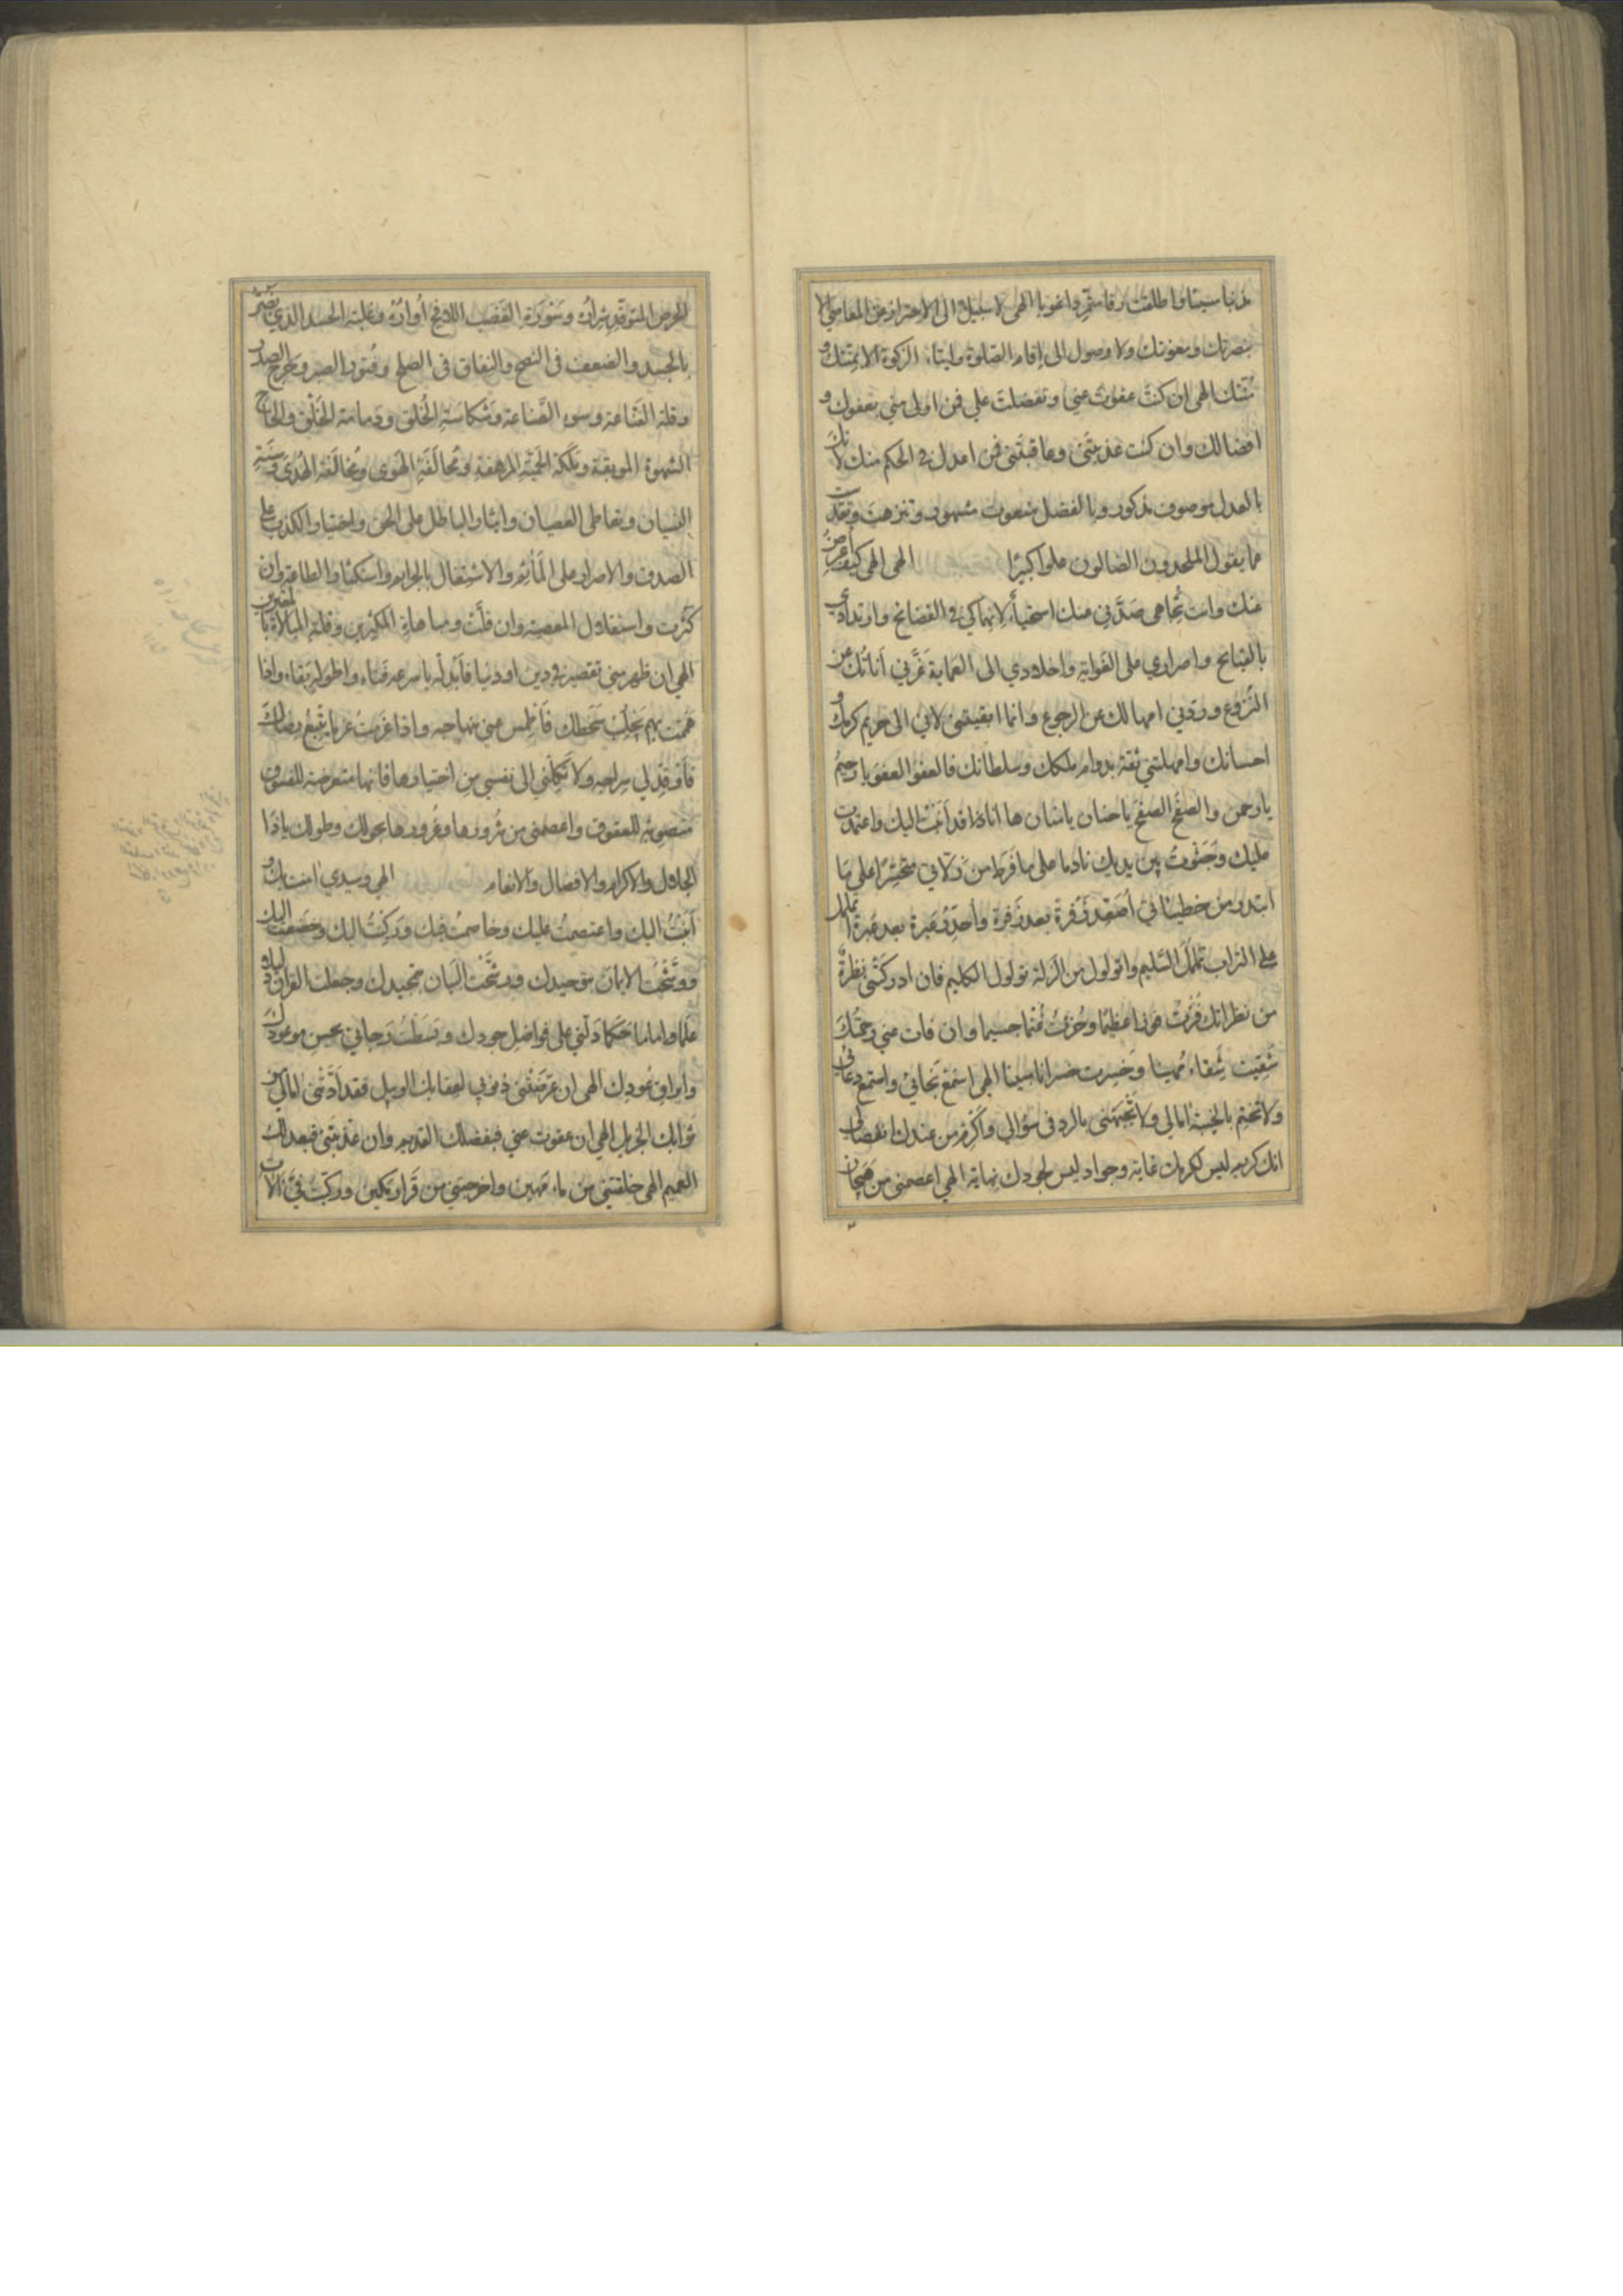 مذنبا سيئا واطلقت رقا متمرداغويا الهى لا سبيل الى الاحتراز من المعاصى الا
بنصرتك ومعونتك ولا وصول الى اقام الصلوة وايتاء الزكوة الا بمنتك و
الهى ان كنت عفوت عنى وتفضلت علي فمن اولى منى بعفوك و
افضالك وان كنت عذبتنى وعاقبتنى فمن اعدل فى الحكم منك لانك
بالعدل موصوف مذكور وبالفضل منعوت مشهور وتنزهت وتقدست
عما يقول الملحدون الضالون علوا كبيرا الهى الهى كيف اعرض
عنك وانت تجاهى صدني منك استحياء لانهماكى فى الفضائح وارتدادي
بالقبائح واصراري على الغواية واخلادي الى العماية غرني اناتك عن
النزوع وردني امهالك عن الرجوع وانما ابقيتنى لاني الى حريم كرمك و
احسانك وامهلتني ثقة بدوام ملكك وسلطانك فالعفو العفو يا رحيم
يا رحمن والصفح الصفح يا حنان يا منان ها انا ذا قد أنبت اليك واعتمدت
عليك وجثوت بين يديك نادما على ما فرط من زلاتي متحسرا على ما
ابتدر من خطيئاتي أصعد زفرة بعد زفرة وأحدر عبرة بعد عبرة اتململ
على التراب تململ السليم واتولول من الزلة تولول الكليم فان ادركتنى نظرة
من نظراتك فزت فوزا عظيما وحزت غنما جسيما وان فات عني رحمتك
شقيت شقاء مهينا وخسرت خسرانا مبينا الهى اسمع نجائي واستمع دعائي
ولا تختم بالخيبة امالي ولا تجبهنى بالرد فى سؤالي واكرم من عندك انفصالي
انك كريم ليس لكرمك غاية وجواد ليس لجودك نهاية الهي اعصمنى من هيجان
الحرص المتوقد شراره وسورة الغضب اللافح أواره وغلبة الحسد الذي يضر
بالجسد والضعف فى النصح والنفاق فى الصلح وفتور الصبر وحرج الصدر
وقلة القناعة وسوء الصناعة وشكاسة الخلق ودمامة الخلق والحاح
الشهوة الموبقة وملكة الحمية المرهفة ومحالفة الهوى ومخالفة الهدى وسنة
النسيان وتعاطى العصيان وايثار الباطل على الحق واختيار الكذب على
الصدق والاصرار على المآثم والاشتغال بالجرائم واستكثار الطاعة وان
كثرت واستقلال المعصية وان قلت ومباهاة المكثرين وقلة المبالاة بالمقترين
الهي ان ظهر منى تقصير فى دين او دنيا فابدله باسرعه فناء واطوله بقاء واذا
هممت بهم يجلب سخطك فاطمس عنى منهاجه واذا عزمت عزما يتبع رضاك
فاوقد لي سراجه ولا تكلني الى نفسى من اختيارها فانها متعرضة للفسوق
متصدية للعقوق واعصمنى من شرورها وغرورها بحولك وطولك يا ذا
الجلال والاكرام والافضال والانعام الهي وسيدي امنت بك و
أنبت اليك واعتصمت عليك وخاصمت فيك وركنت اليك وخضعت اليك
ووشحت الايمان بتوحيدك ورشحت البيان بتمجيدك وجعلت القران دليلا و
علما واماما حكما دلني على فواضل جودك وبسطت رجائي بحسن موعودك
وايراق عودك الهى ان عرضتنى ذنوبي لعقابك الوبيل فقد أدنتنى امالي من
ثوابك الجزيل الهي ان عفوت عني فبفضلك القديم وان عذبتني فبعدلك
العميم الهى خلقتني من ماء مهين واخرجتني من قرار مكين وركبت فيّ آلات